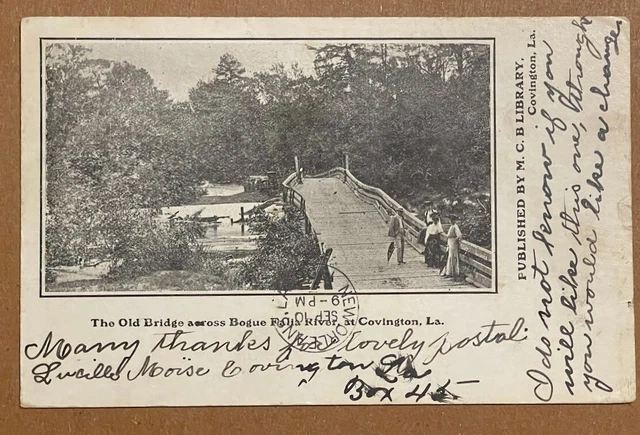 The Old Bridge across Bogue Falia River, at Covington, La.
PUBLISHED BY M. C. B LIBRARY,
Covington, La.
NEW
SEP 10
9-PM
Many thanks for lovely postal.
Lucille Moïse Covington La
Box 45
I do not know if you
will like this one, Although
you would like a change